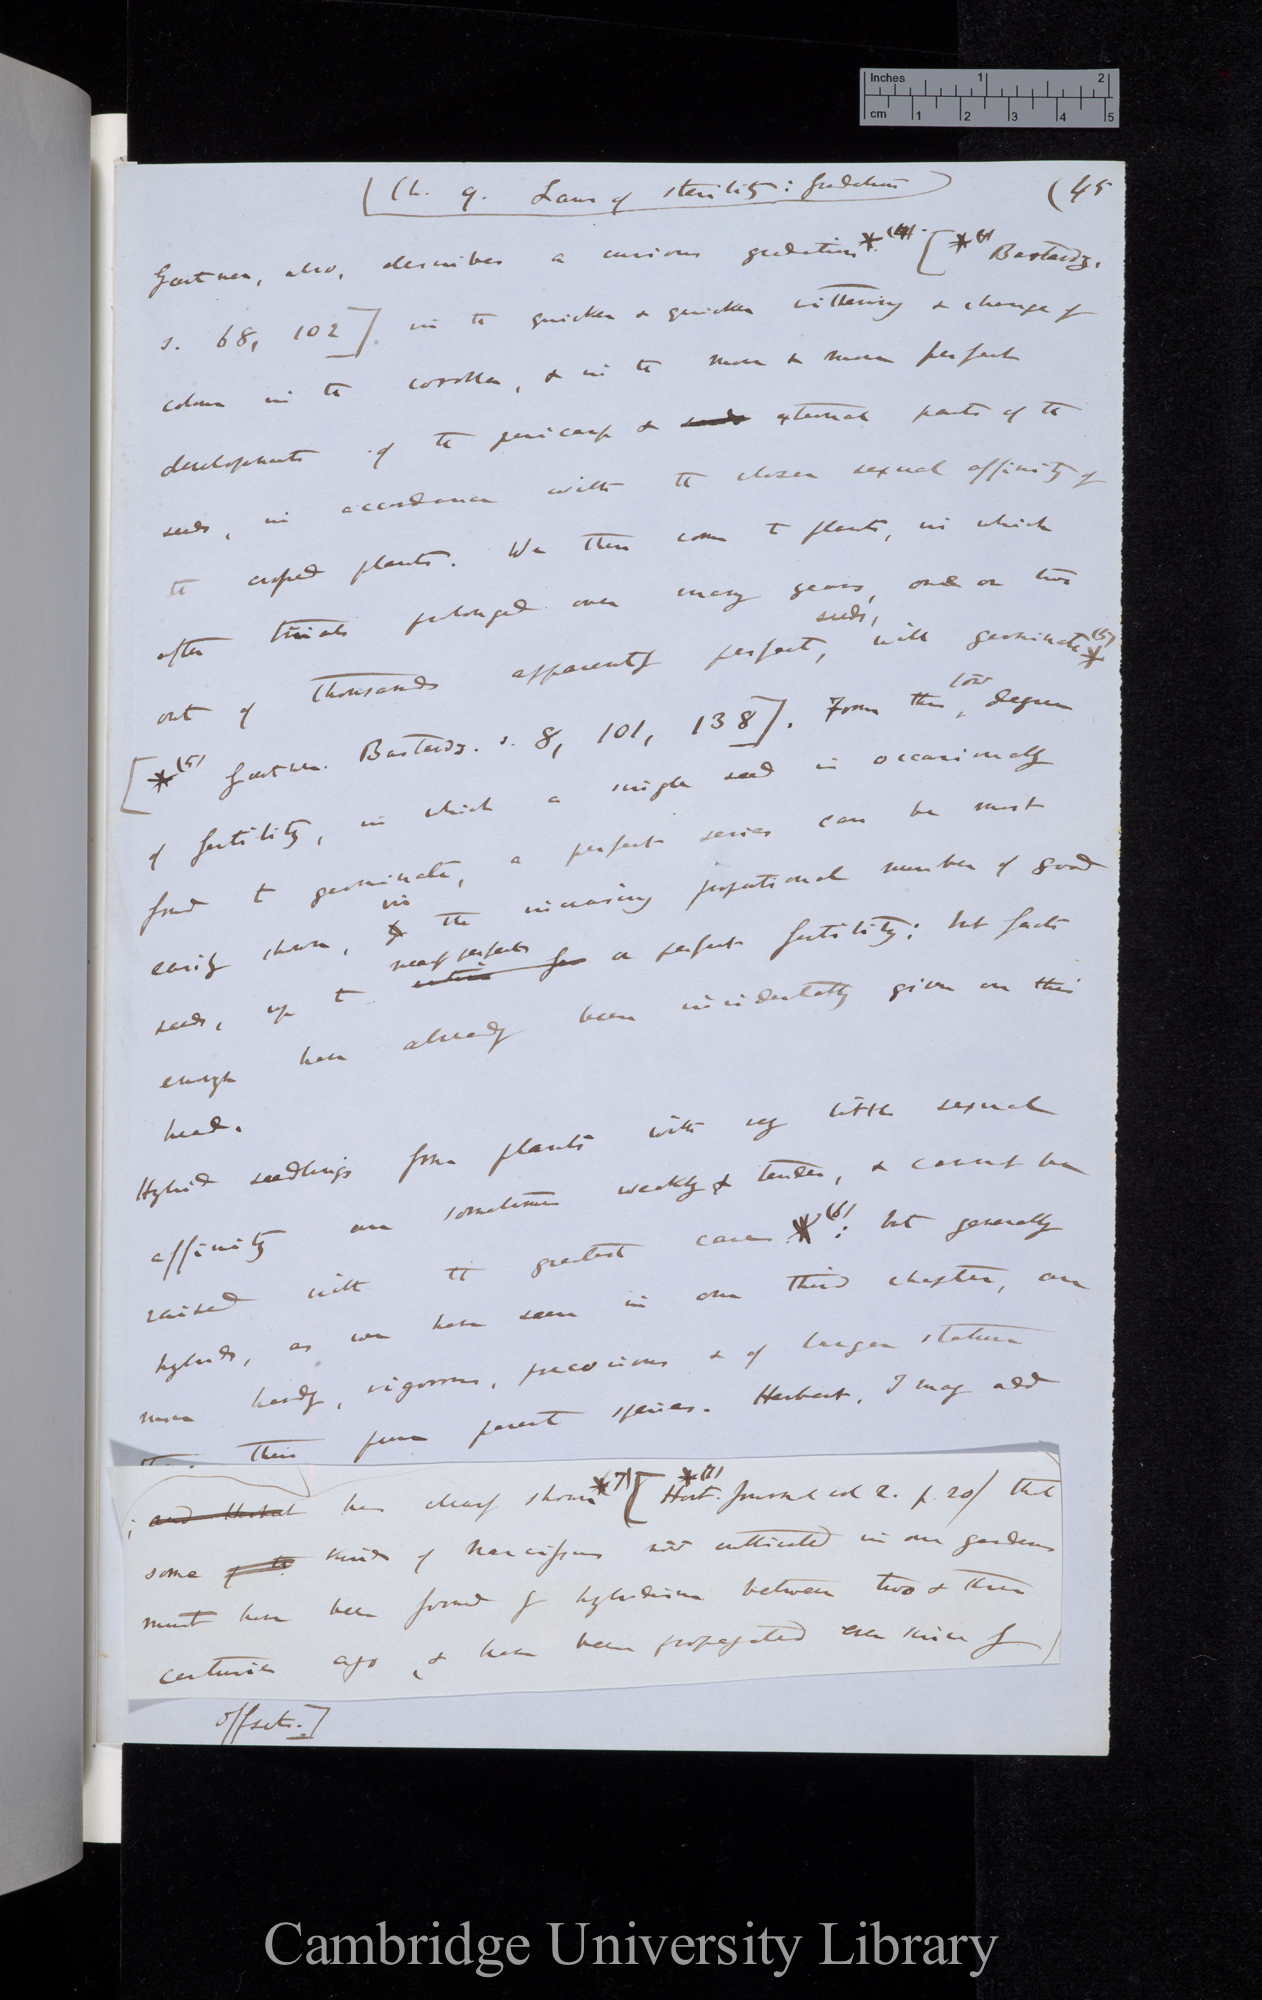 Inches 1 2
cm 1 2 3 4 5
(Ch. 9. Laws of sterility: gradations) (45
Gærtner, also, describes a curious gradation *(4). [*(4) Bastardz.
s. 68, 102] in the quicker & quicker withering & change of
colour in the corolla, & in the more & more perfect
developments of the pericarp & seeds external parts of the
seeds, in accordance with the closer sexual affinity of
the crossed plants. We then come to plants, in which
after trials prolonged over many years, one or two
seeds,
out of thousands apparently perfect, will germinate *(5)
low
[*(5) Gærtner. Bastardz. s. 8, 101, 138]. From this degree
of fertility, in which a single seed is occasionally
found to germinate, a perfect series can be most
in
easily shown, by the increasing proportional number of good
nearly perfect
seeds, up to entire for or perfect fertility; but facts
enough have already been incidentally given on this
head.
Hybrid seedlings from plants with very little sexual
affinity are sometimes weakly & tender, & cannot be
raised with the greatest care *(6): but generally
hybrids, as we have seen in our third chapter, are
more hardy, vigorous, precocious & of larger stature
than their pure parent species. Herbert, I may add
; and Herbert has clearly shown *(7) [*(7) Hort. Journal vol 2. p. 20/ that
some of the kinds of Narcissus now cultivated in our gardens
must have been formed by hybridism between two & three
centuries ago, & have been propagated ever since by
offsets.]
Cambridge University Library